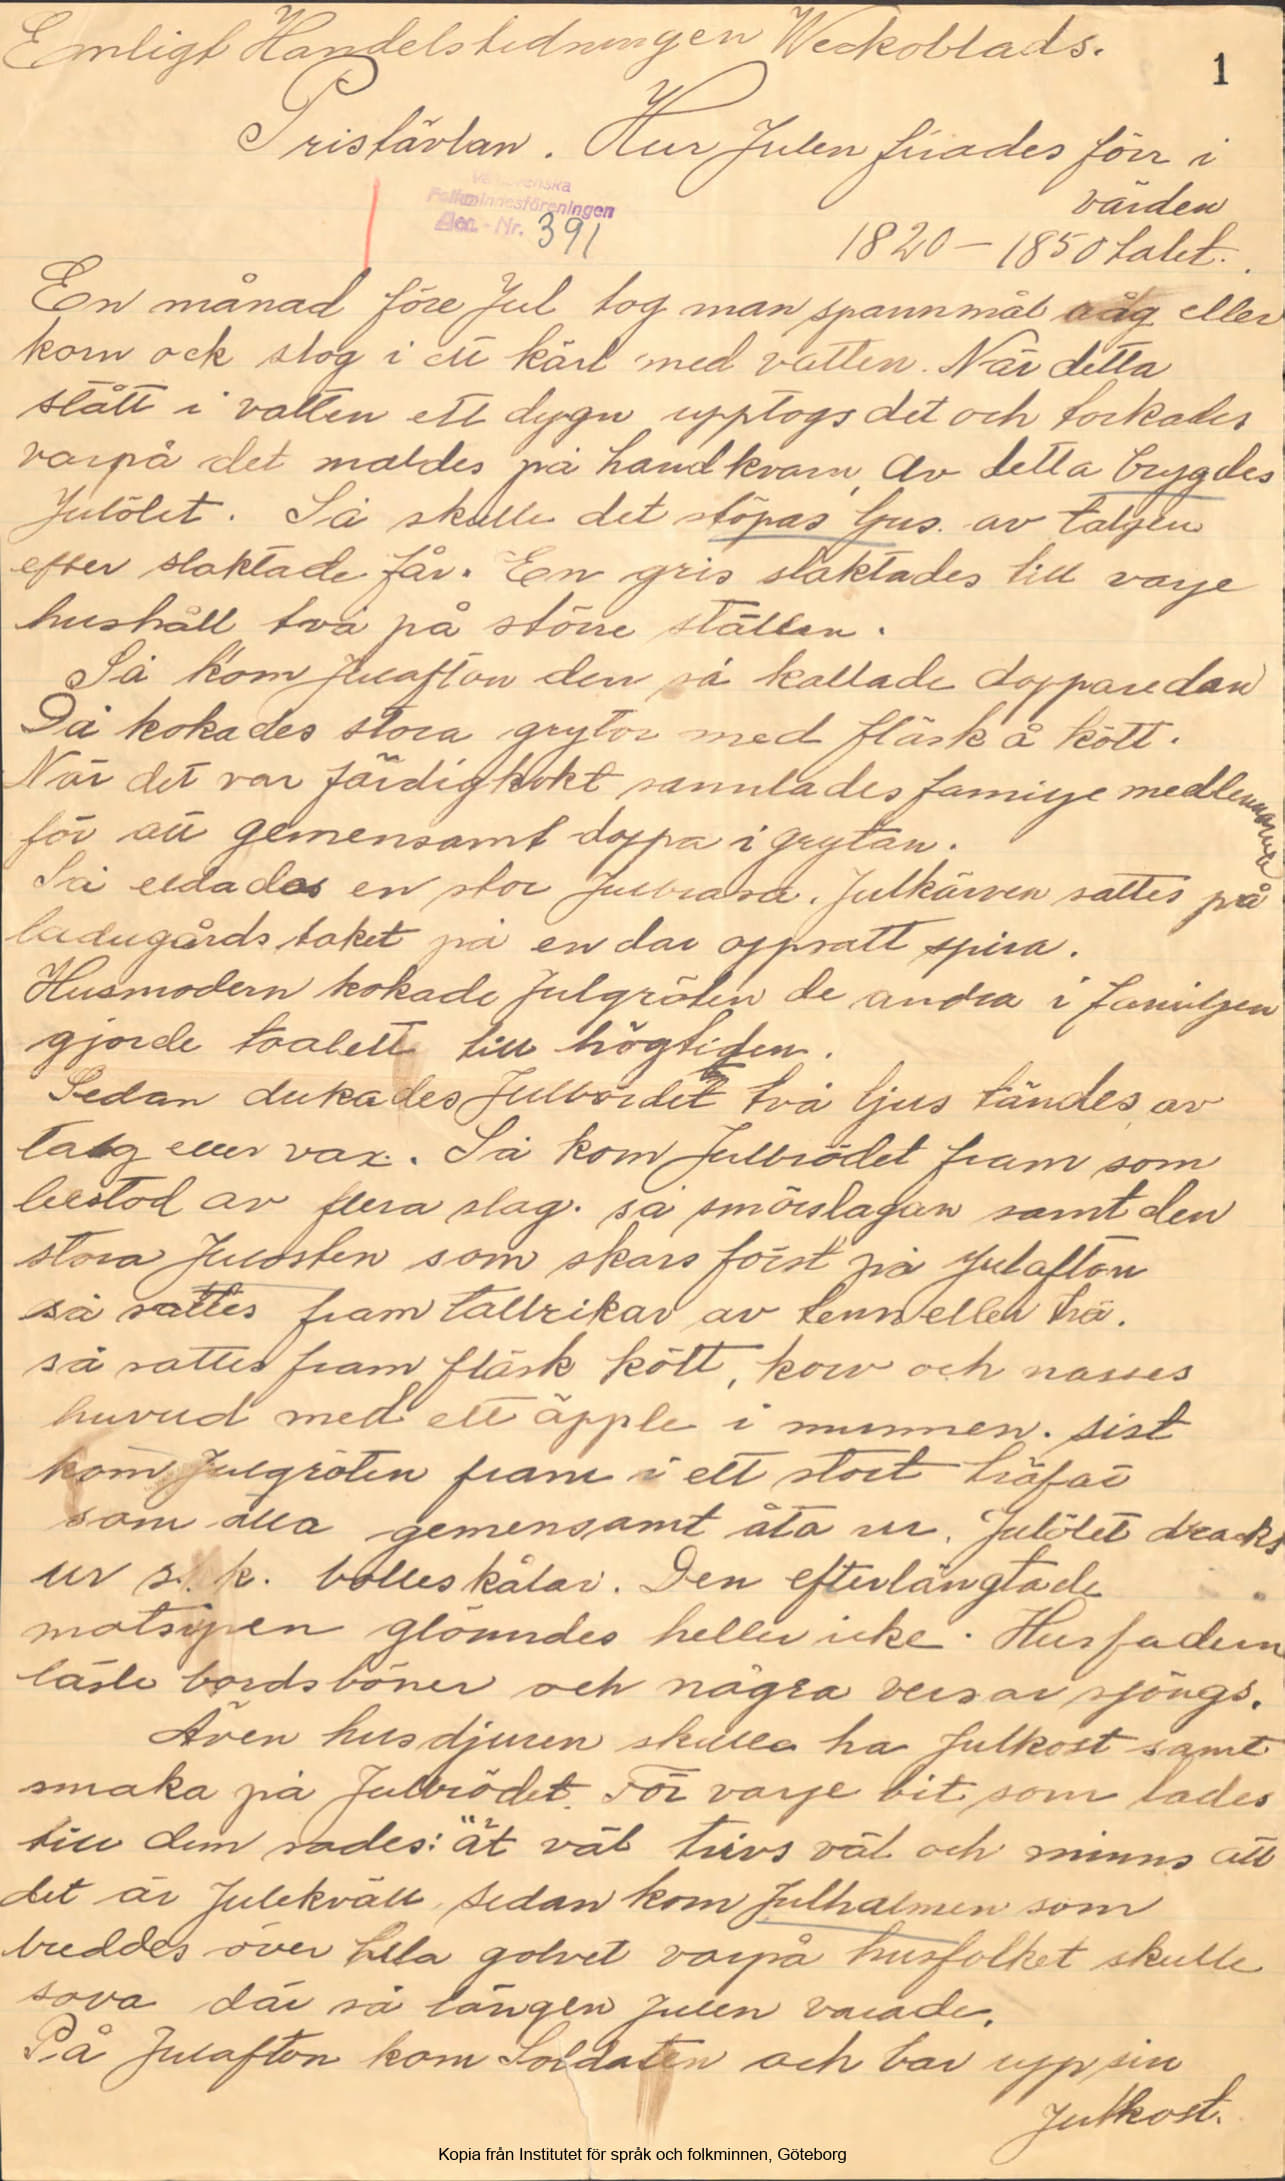 Emligt Handelstidningen Weckoblads.
1
Pristävlan. Hur Julen firades förr i
värden
Västsvenska
Folkminnesföreningen
Acc. - Nr. 391
1820 – 1850 talet.
En månad före Jul tog man spannmål råg eller
korn ock slog i ett kärl med vatten. När detta
stått i vatten ett dygn upptogs det och torkades
varpå det maldes på handkvarn, Av detta brygdes
Julölet. Så skulle det stöpas ljus av talgen
efter slaktade får. En gris slaktades till varje
hushåll två på större ställen.
Så kom Julafton den så kallade dopparedan
Då kokades stora grytor med fläsk å kött.
När det var färdigkokt samlades familje medlemmarna
för att gemensamt doppa i grytan.
Så eldades en stor Julbrasa. Julkärven sattes på
ladugårdstaket på en där oppsatt spira.
Husmodern kokade Julgröten de andra i familjen
gjorde toalett till högtiden.
Sedan dukades Julbordet två ljus tändes av
talg eller vax. Så kom Julbrödet fram som
bestod av flera slag. så smörslagan samt den
stora Julosten som skars först på Julafton
så sattes fram tallrikar av tenn eller trä.
så sattes fram fläsk kött, korv och nasses
huvud med ett äpple i munnen. sist
kom Julgröten fram i ett stort träfat
som alla gemensamt åta ur. Julölet dracks
ur s. k. bolleskålar. Den efterlängtade
matsupen glömdes heller icke. Husfadern
läste bordsböner och några versar sjöngs.
Även husdjuren skulle ha Julkost samt
smaka på Julbrödet. För varje bit som lades
till dem sades: "ät väl trivs väl och minns att
det är Julekväll. Sedan kom Julhalmen som
breddes över hela golvet varpå husfolket skulle
sova där så längen Julen varade.
På Julafton kom Soldaten och bar upp sin
Julkost.
Kopia från Institutet för språk och folkminnen, Göteborg